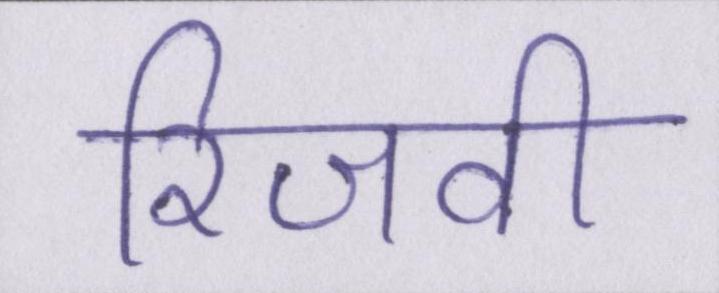 रिजवी